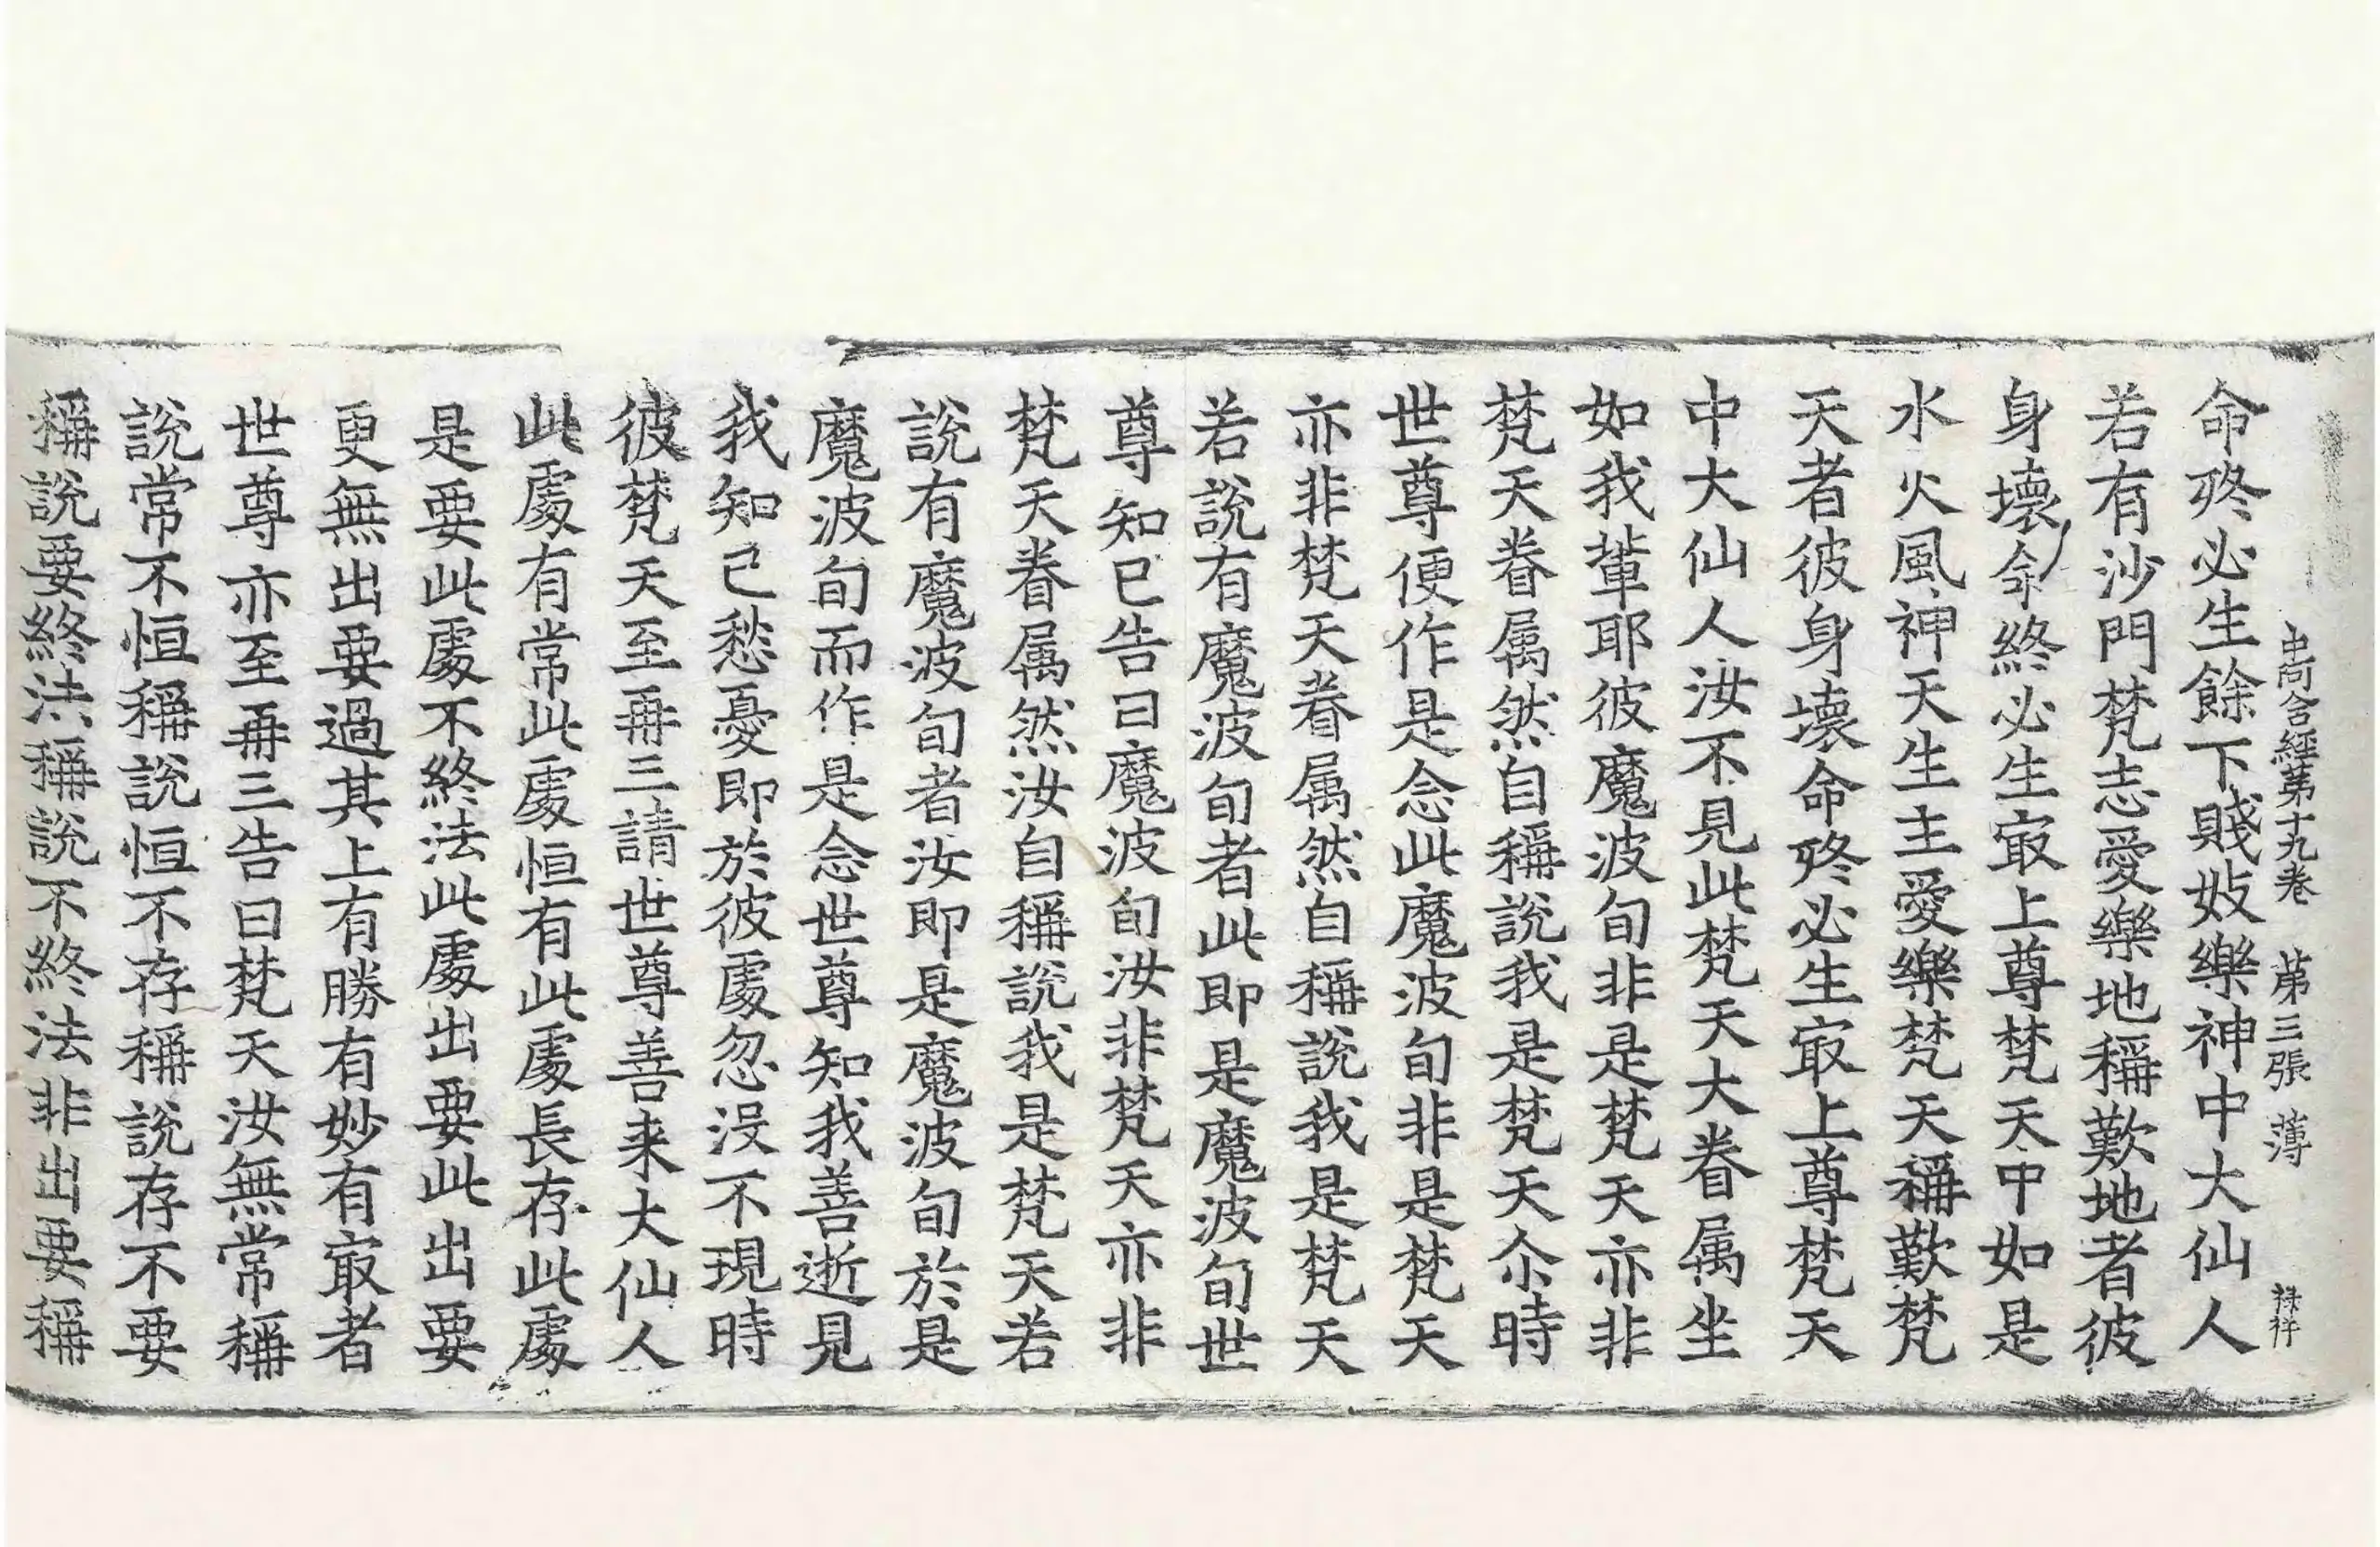 中阿含經第十九卷　第三張　薄　祿祥
命終必生餘下賤妓樂神中大仙人
若有沙門梵志愛樂地稱歎地者彼
身壞命終必生㝡上尊梵天中如是
水火風神天生主愛樂梵天稱歎梵
天者彼身壞命終必生㝡上尊梵天
中大仙人汝不見此梵天大眷属坐
如我輩耶彼魔波旬非是梵天亦非
梵天眷属然自稱說我是梵天尒時
世尊便作是念此魔波旬非是梵天
亦非梵天眷属然自稱說我是梵天
若說有魔波旬者此即是魔波旬世
尊知已告曰魔波旬汝非梵天亦非
梵天眷属然汝自稱說我是梵天若
說有魔波旬者汝即是魔波旬於是
魔波旬而作是念世尊知我善逝見
我知已愁憂即於彼處忽没不現時
彼梵天至再三請世尊善来大仙人
此處有常此處恒有此處長存此處
是要此處不終法此處出要此出要
更無出要過其上有勝有妙有㝡者
世尊亦至再三告曰梵天汝無常稱
說常不恒稱說恒不存稱說存不要
稱說要終法稱說不終法非出要稱